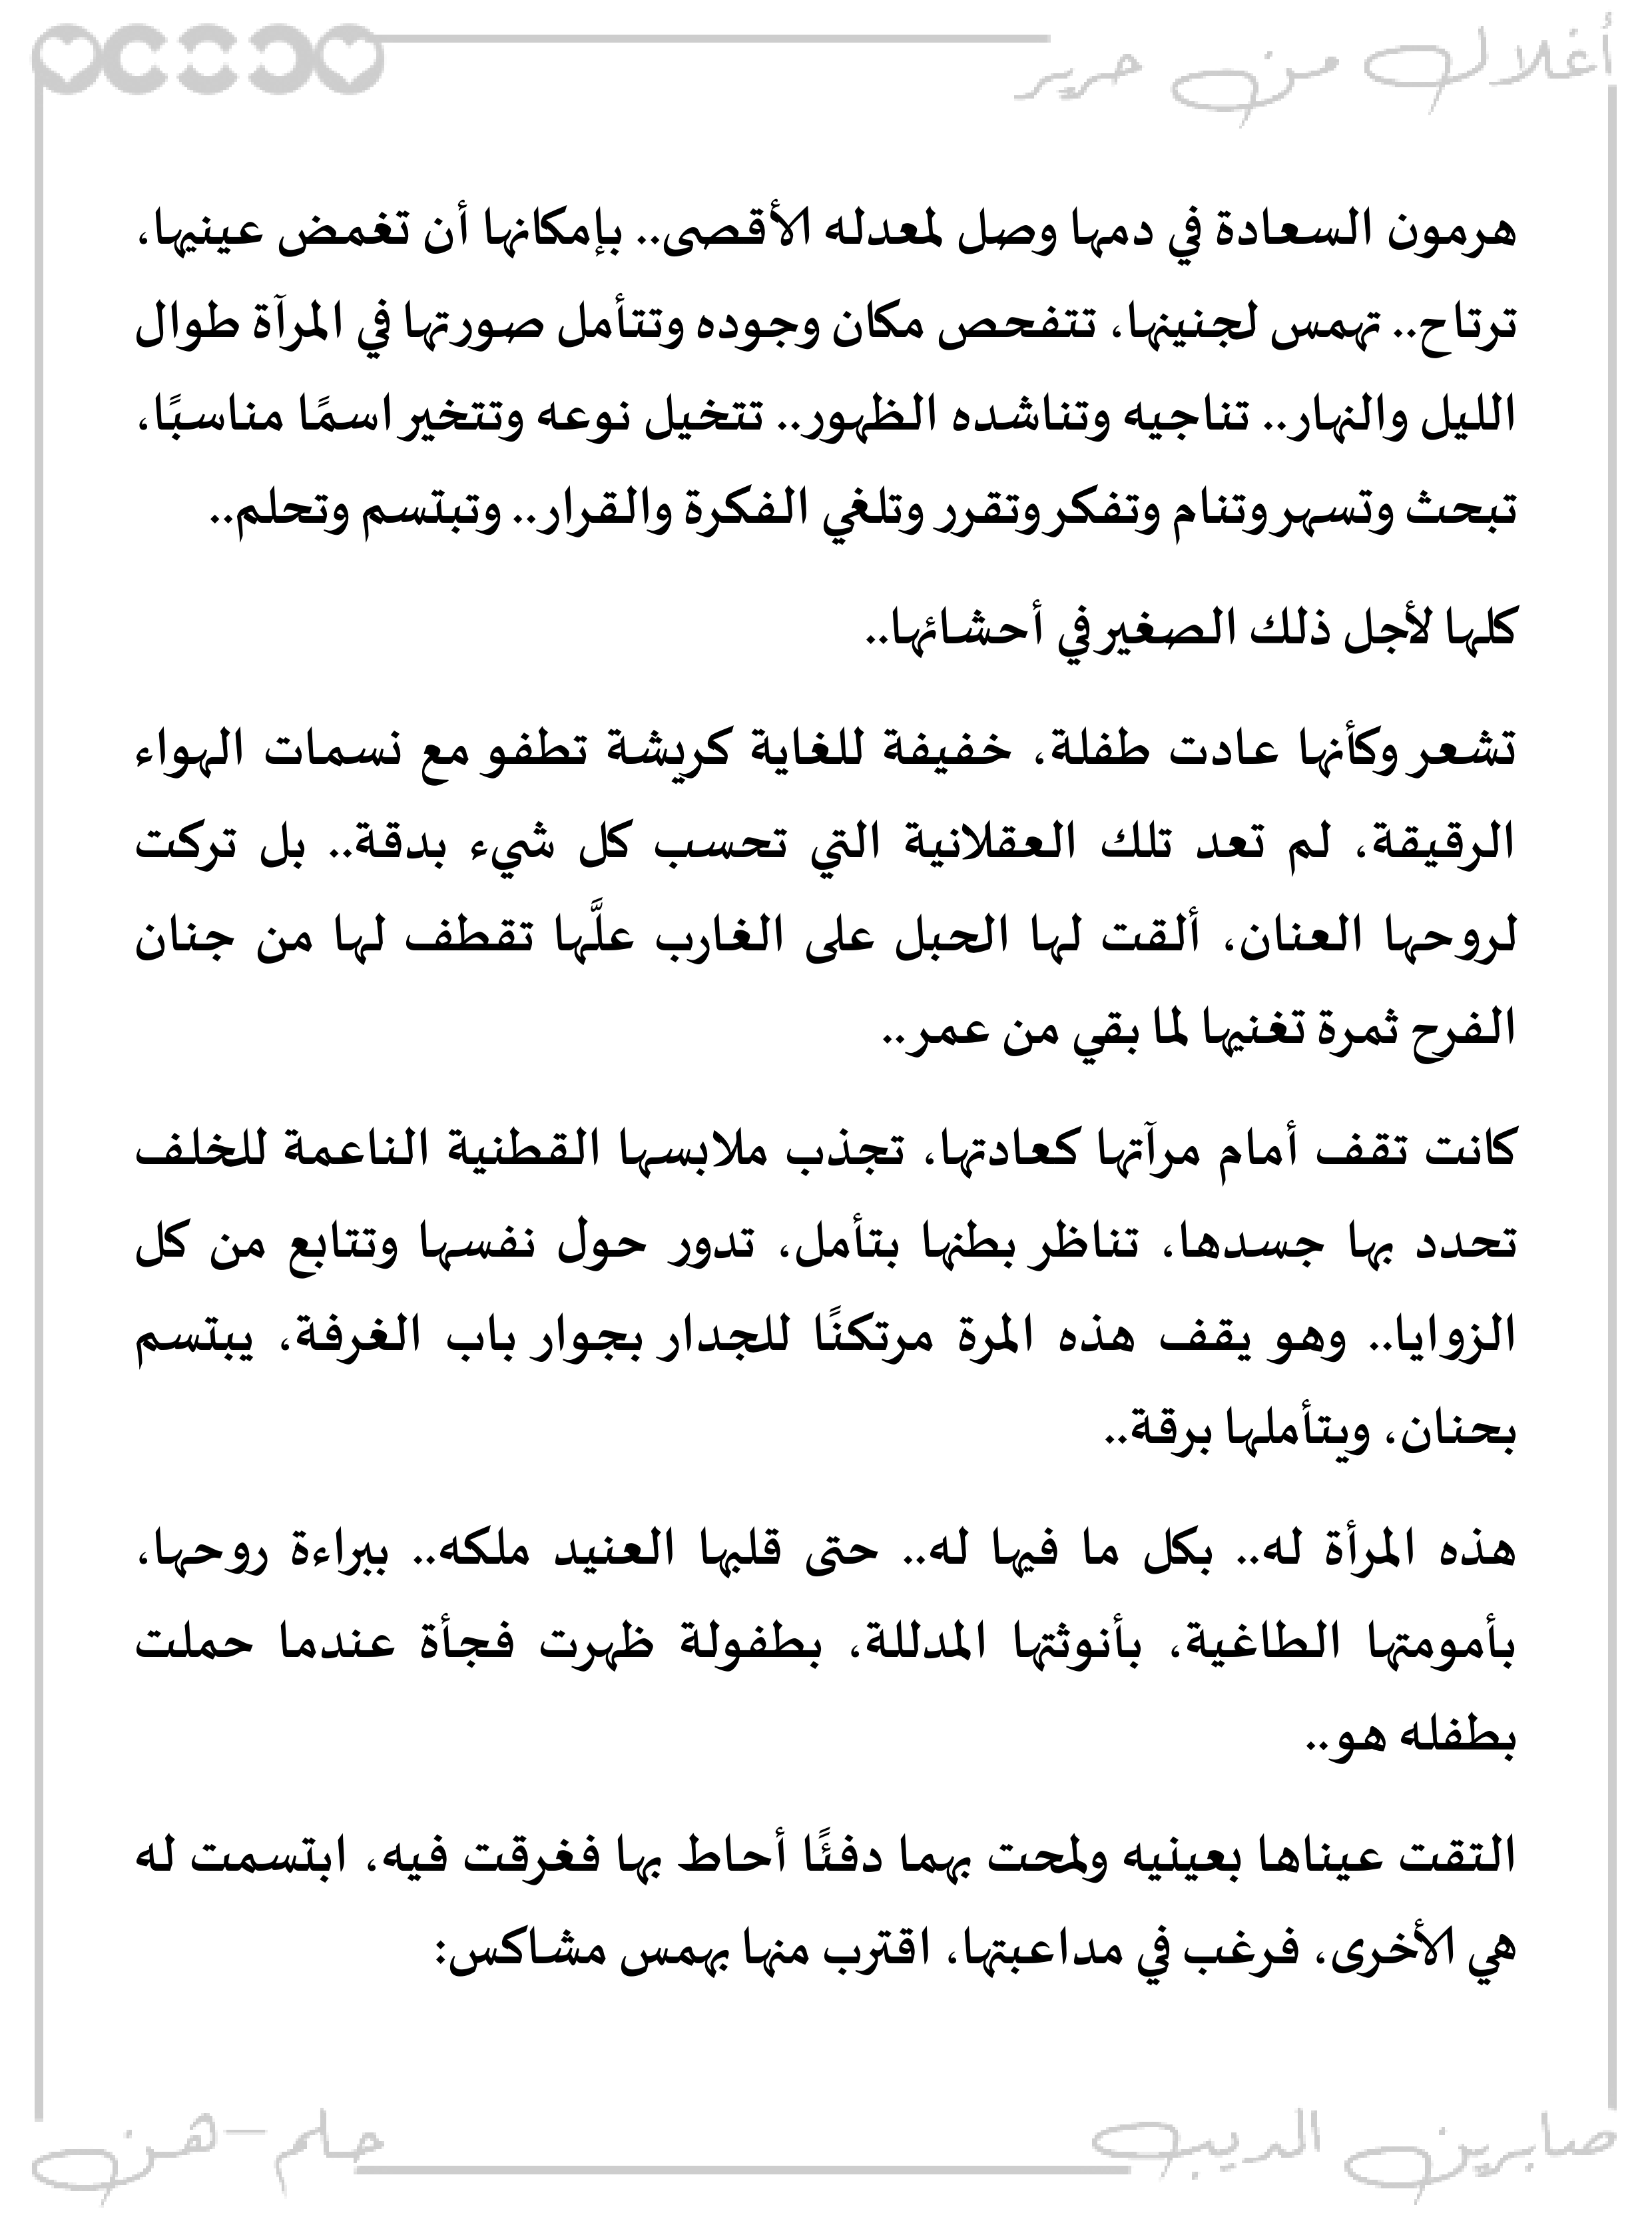 أغلال من حرير
هرمون السعادة في دمها وصل لمعدله الأقصى.. بإمكانها أن تغمض عينيها،
ترتاح.. تهمس لجنينها، تتفحص مكان وجوده وتتأمل صورتها في المرآة طوال
الليل والنهار.. تناجيه وتناشده الظهور.. تتخيل نوعه وتتخير اسمًا مناسبًا،
تبحث وتسهر وتنام وتفكر وتقرر وتلغي الفكرة والقرار.. وتبتسم وتحلم..
كلها لأجل ذلك الصغير في أحشائها..
تشعر وكأنها عادت طفلة، خفيفة للغاية كريشة تطفو مع نسمات الهواء
الرقيقة، لم تعد تلك العقلانية التي تحسب كل شيء بدقة.. بل تركت
لروحها العنان، ألقت لها الحبل على الغارب علَّها تقطف لها من جنان
الفرح ثمرة تغنيها لما بقي من عمر..
كانت تقف أمام مرآتها كعادتها، تجذب ملابسها القطنية الناعمة للخلف
تحدد بها جسدها، تناظر بطنها بتأمل، تدور حول نفسها وتتابع من كل
الزوايا.. وهو يقف هذه المرة مرتكنًا للجدار بجوار باب الغرفة، يبتسم
بحنان، ويتأملها برقة..
هذه المرأة له.. بكل ما فيها له.. حتى قلبها العنيد ملكه.. ببراءة روحها،
بأمومتها الطاغية، بأنوثتها المدللة، بطفولة ظهرت فجأة عندما حملت
بطفله هو..
التقت عيناها بعينيه ولمحت بهما دفئًا أحاط بها فغرقت فيه، ابتسمت له
هي الأخرى، فرغب في مداعبتها، اقترب منها بهمس مشاكس:
صابرين الديب
حلم-هن